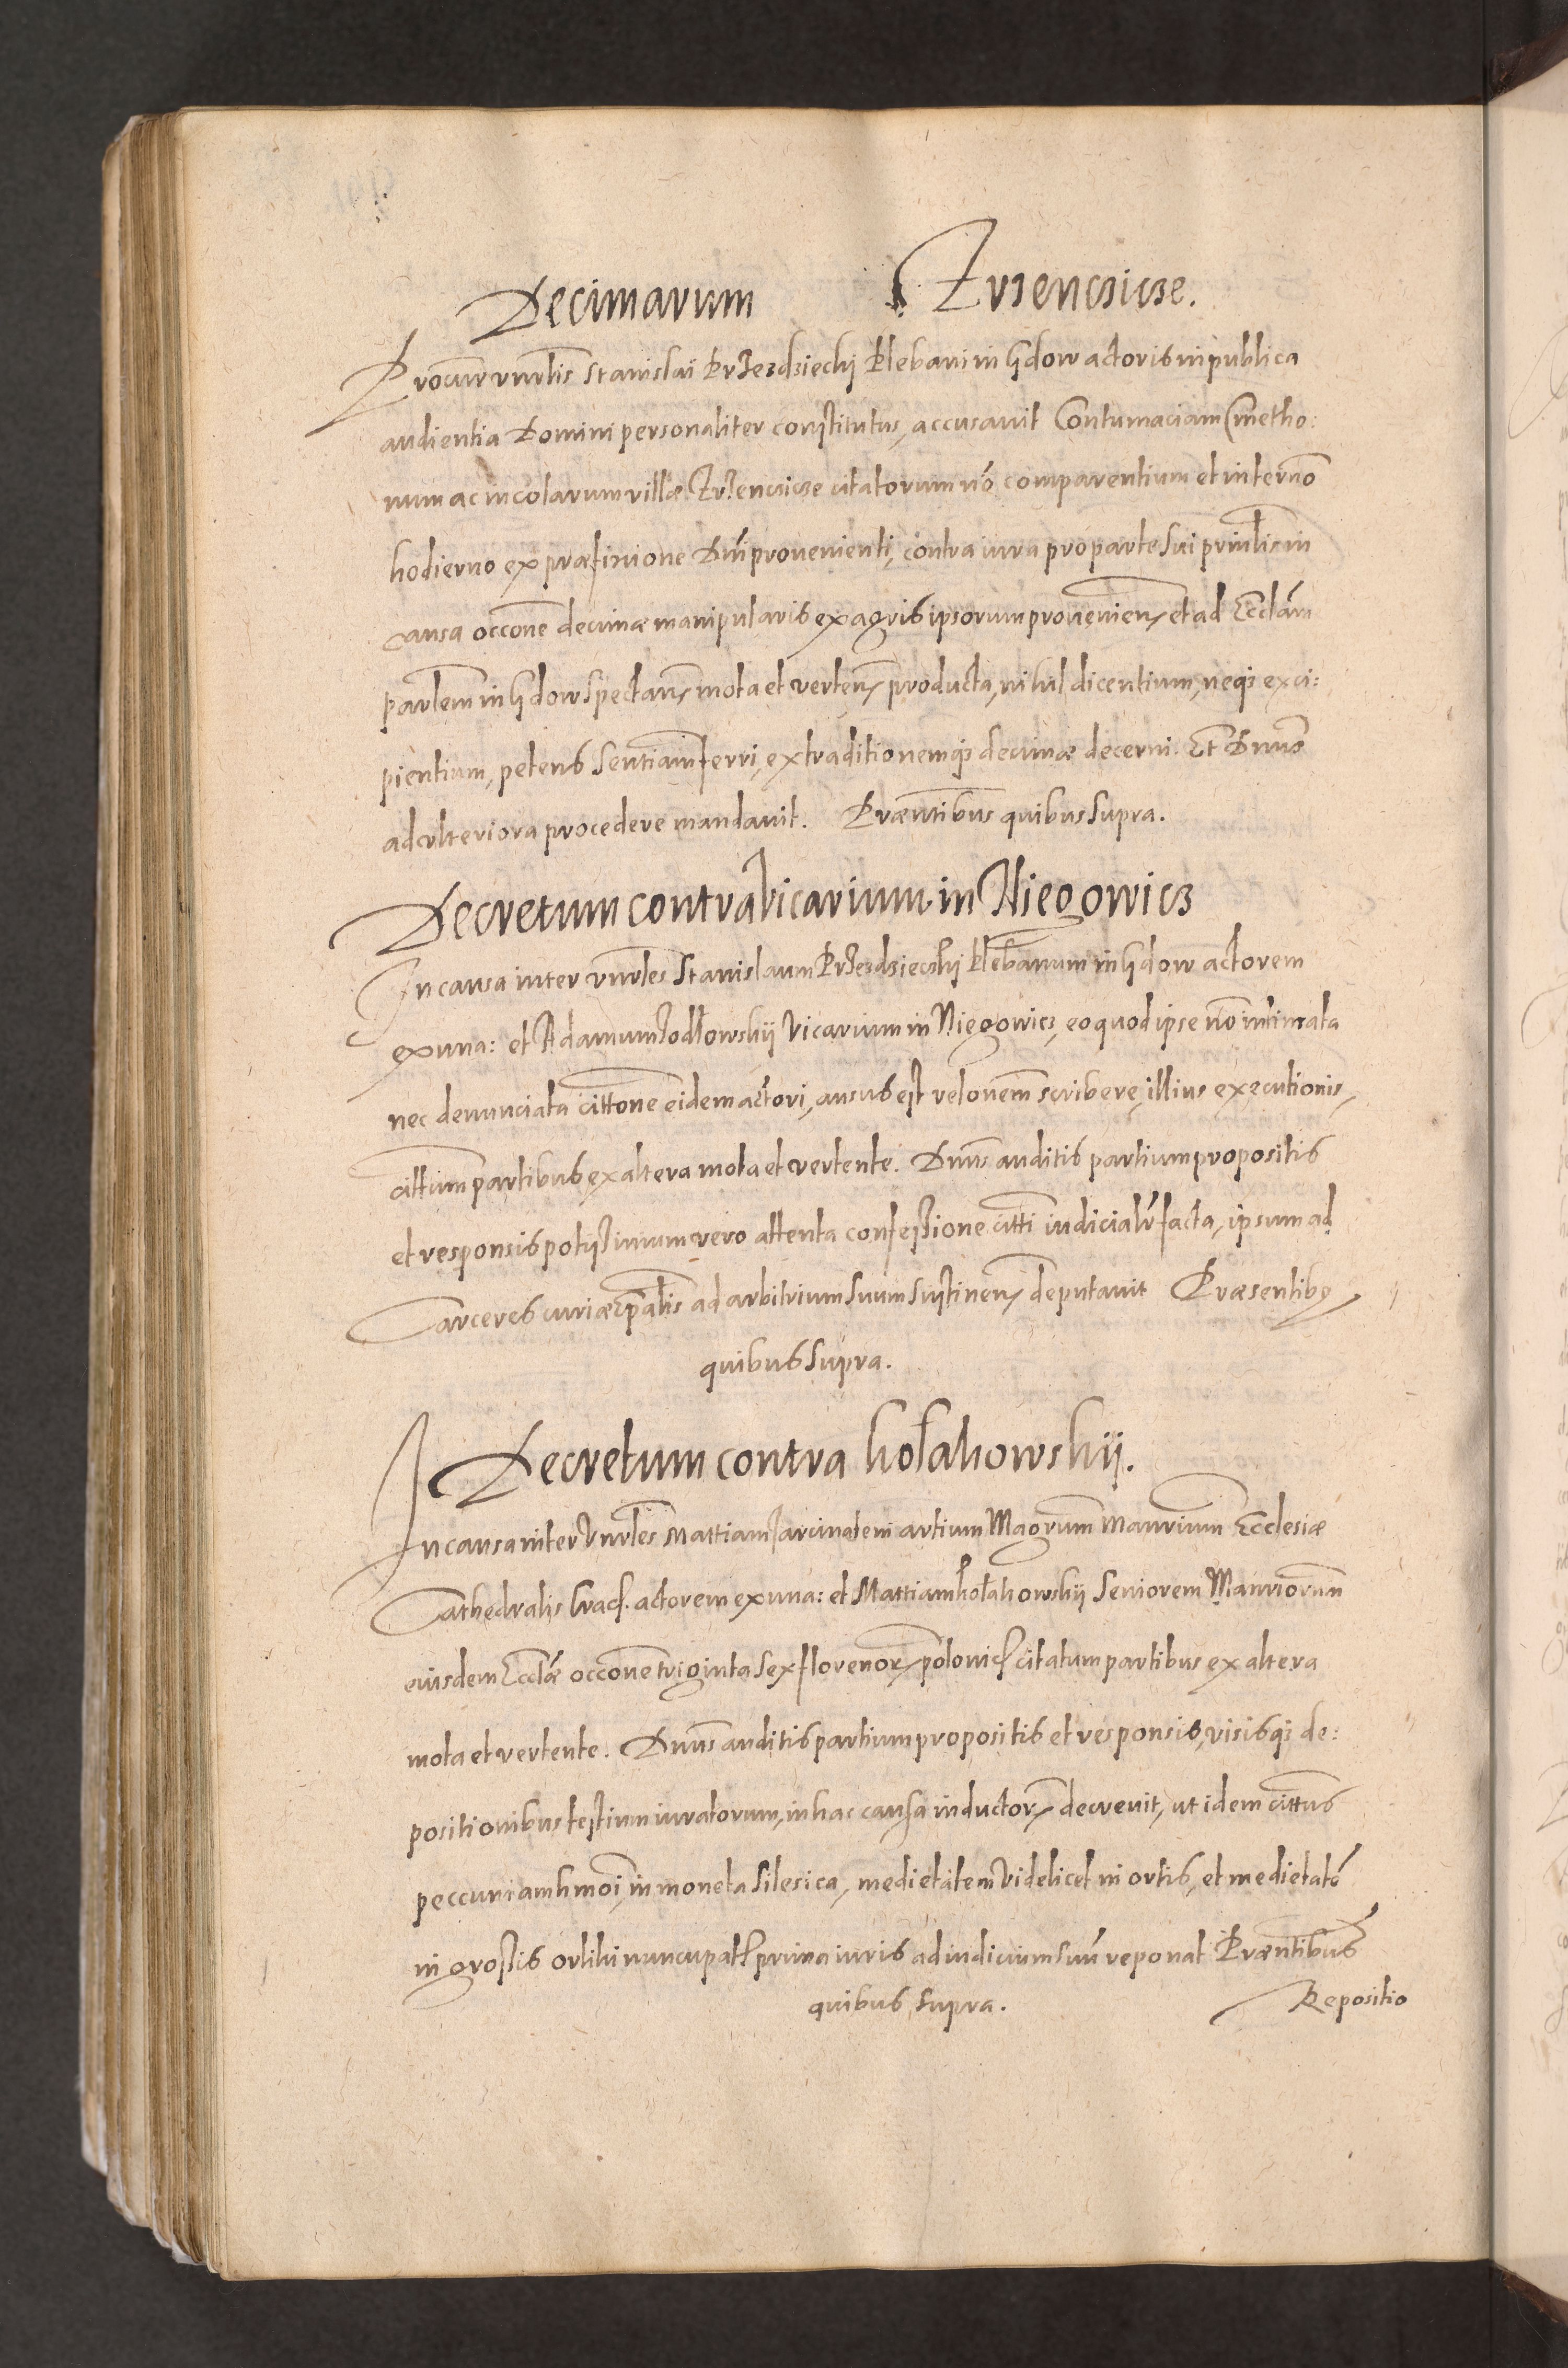 Decimarum Trzencsicze.
Procur vnrlis Stanislai Przezdziechij Plebani in Gdow actoris in publica
audientia Domini personaliter constitutus, accusauit Contumaciam Cmetho:
num ac incolarum villæ Trzencsicze citatorum nõ comparentium et in termõ
hodierno ex præfixione Dnĩ prouenienti, contra iura pro parte sui prinłis in
causa occõne decimæ manipularis ex agris ipsorum prouenien, et ad Ecclãm
parłem in Gdow spectan, mota et verten, producta, nihil dicentium, neq3 exci:
pientium, petens sentiam ferri, extraditionemq3 decimæ decerni. Et Dnus
ad vlteriora procedere mandauit. Præntibus quibus supra.
Decretum contra Vicarium in Niegowicz
In causa inter vnrles Stanislaum Przezdziecskij Plebanum in Gdow actorem
ex una: et Adamum Jodłowskij Vicarium in Niegowicz, eo quod ipse nõ intimata
nec denunciata cittõne eidem actori, ausus est relonem scribere, illius executionis,
cittum partibus ex altera mota et vertente. Dnus auditis partium propositis
et responsis potissimum vero attenta confessione citti iudicialr facta, ipsum ad
Carceres curiæ Epalis ad arbitrium suum sustinen, deputauit Præsentibq
quibus supra.
Decretum contra kołakowskij.
In causa inter Vnrles Mattiam Jarcinatem artium Magrum Manrium Ecclesiæ
Cathedralis Crac. actorem ex una: et Mattiam kołakowskij Seniorem Manriorum
eiusdem Ecclæ occone triginta sex florenor, polonic citatum partibus ex altera
mota et vertente. Dnus auditis partium propositis et responsis, visisq3 de:
positionibus testium iuratorum, in hac causa inductor, decreuit, ut idem cittus
peccuniam hmõi, in moneta silesica, medietatem videlicet in ortis, et medietatẽ
in grossis ortihi nuncupat prima iuris ad iudicium suũ reponat Præntibus
quibus supra. Repositio